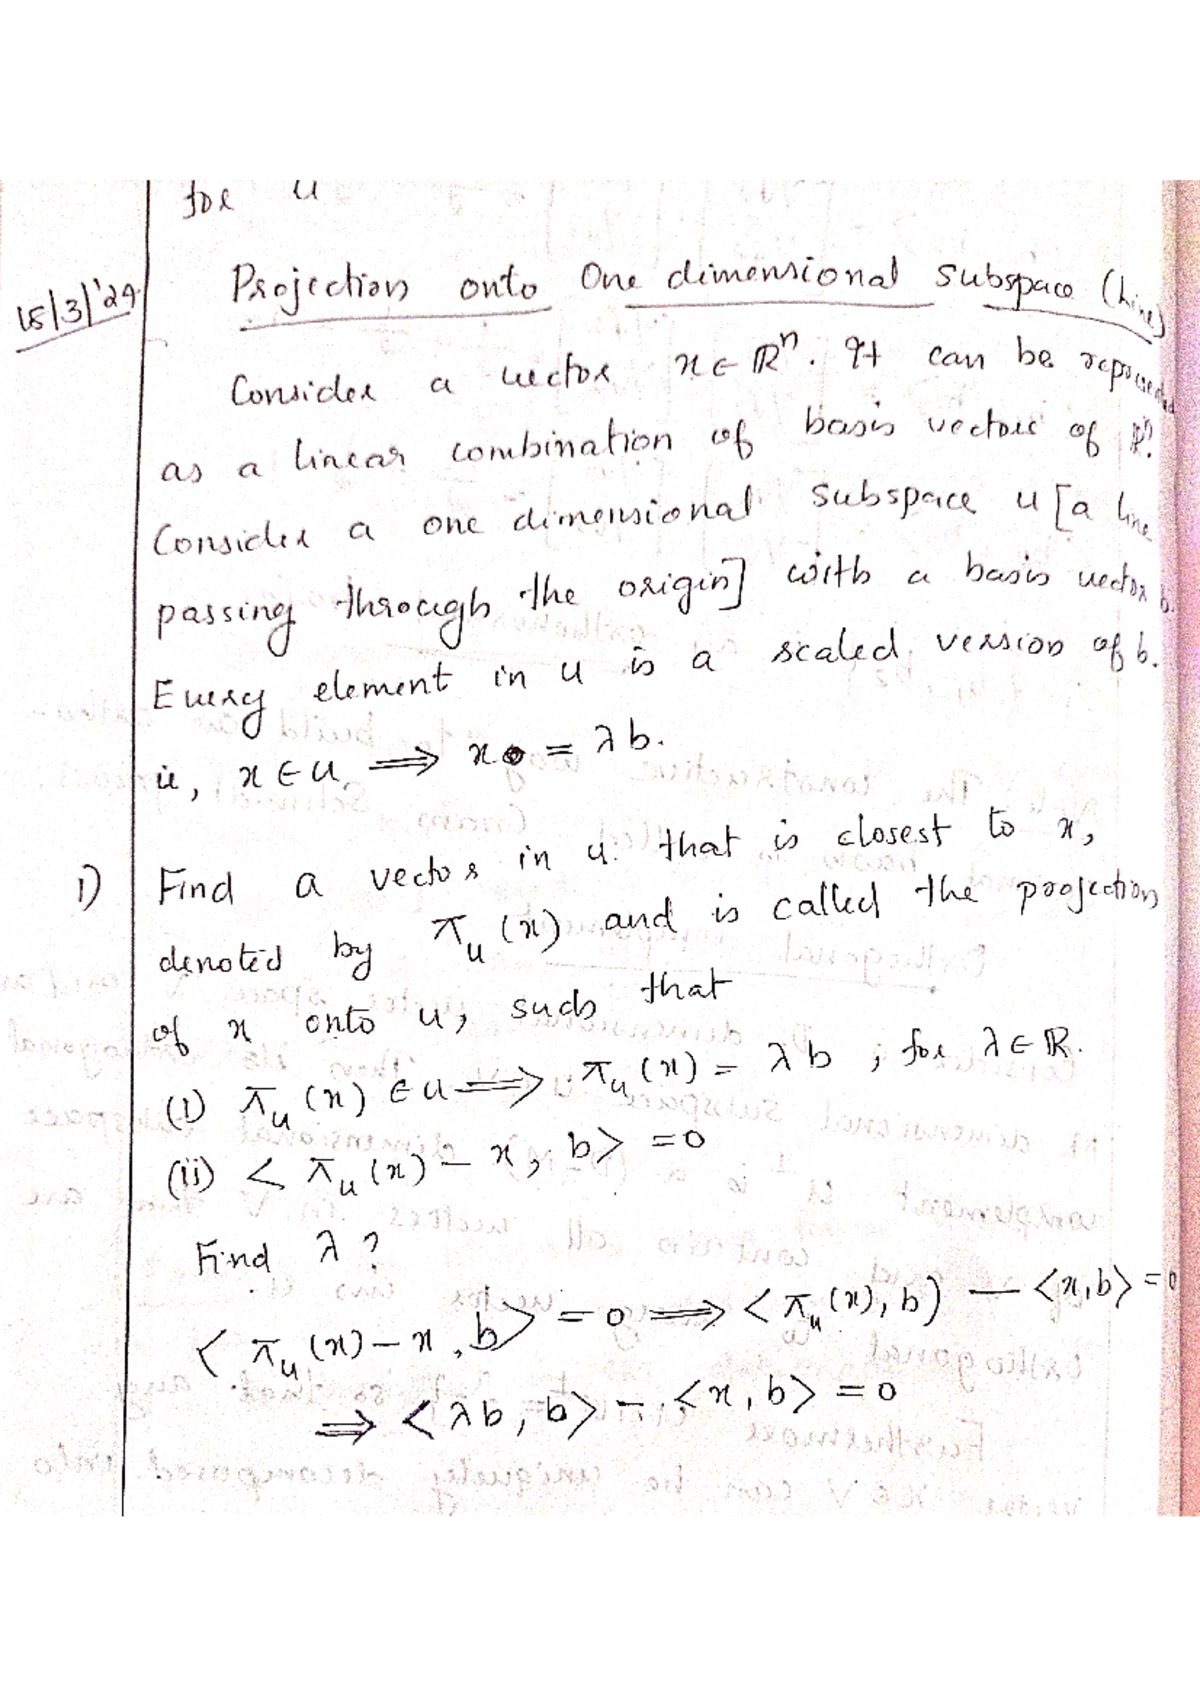 for u
15/3/'24
Projection onto One dimensional subspace (Line)
Consider a vector x ∈ ℝⁿ. It can be represented
as a linear combination of basis vectors of ℝⁿ.
Consider a one dimensional subspace u [a line
passing through the origin] with a basis vector b.
Every element in u is a scaled version of b.
ie, x ∈ u ⟹ x = λb.
1) Find a vector in u that is closest to x,
denoted by π_u(x) and is called the projection
of x onto u, such that
(i) π_u(x) ∈ u ⟹ π_u(x) = λb ; for λ ∈ ℝ.
(ii) < π_u(x) − x, b> = 0
Find λ ?
< π_u(x) − x, b> = 0 ⟹ < π_u(x), b) − <x, b> = 0
⟹ <λb, b> − <x, b> = 0